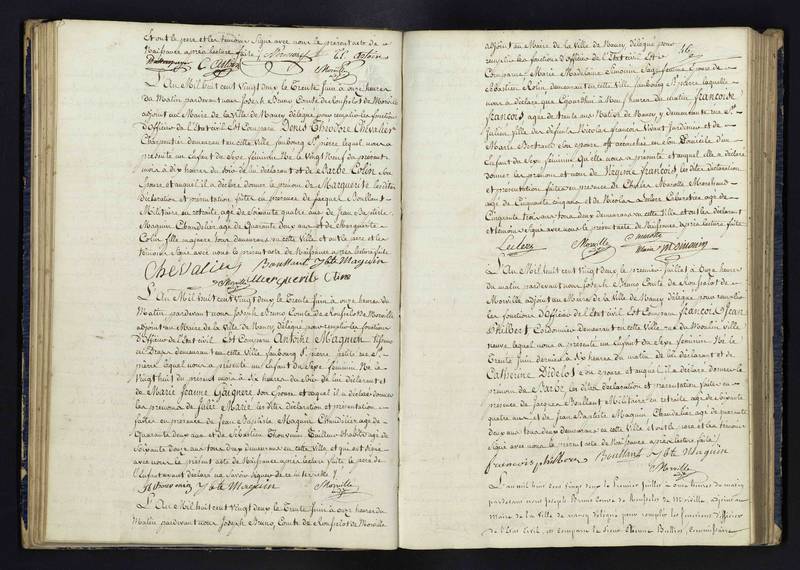 Et ont le pere et les temoins Signé avec nous le présent acte de
Naissance après lecture faite
Morville
L'An Mil huit cent Vingt deux le Trente Juin à onze heures
du Matin pardevant nous Joseph Bruno Comte de Morville
adjoint au Maire de la Ville de Nancy délégué pour remplir les fonctions
d'Officier de l'Etat civil Est Comparu Denis Theodore Chevalier
Charpentier demeurant en cette Ville faubourg St pierre lequel nous a
presenté un Enfant du Sexe féminin Né le Vingt Neuf du présent
mois à dix heures du Soir de lui déclarant et de Barbe Colin Son
Epouse et auquel il a déclaré donner le prénom de Marguerite les dites
déclaration et présentation faites en presence de Jacques Boullant
Militaire en retraite agé de Soixante quatre ans de Jean Baptiste
Maguin Chandelier agé de Quarante deux ans et de Marguerite
Colin fille majeure tous demeurans en cette Ville et ont le pere et les
temoins Signé avec nous le present acte de Naissance après lecture faite
Chevalier Boullant Jbte Maguin
Morville
L'An Mil huit cent Vingt deux le Trente Juin à onze heures du
Matin pardevant nous Joseph Bruno Comte de Morville
adjoint au Maire de la Ville de Nancy délégué pour remplir les fonctions
d'Officier de l'Etat civil Est Comparu Antoine Magnien
en Draps demeurant en cette Ville faubourg St pierre
pierre lequel nous a présenté un Enfant du Sexe féminin Né le
Vingt huit du present mois à Six heures du Soir de lui déclarant et
de Marie Jeanne Son Epouse et auquel il a déclaré donner
les prénoms de Julie Marie les dites déclaration et présentation
faites en presence de Jean Baptiste Maguin Chandelier agé de
Quarante deux ans et de Sébastien Thouvenin Tailleur d'habits agé de
Soixante ans tous deux demeurans en cette Ville et qui ont Signé
avec nous le présent acte de Naissance après lecture faite le pere de
l'Enfant ayant déclaré ne savoir signer de ce interpellé
Jbte Maguin Morville
L'An Mil huit cent Vingt deux le Trente Juin à onze heures du
Matin pardevant nous Joseph Bruno Comte de Morville
adjoint au Maire de la Ville de Nancy délégué pour
remplir les fonctions d'Officier de l'Etat civil Est
Comparue Marie Madelaine Sage femme Epouse de
Sébastien demeurant en cette Ville faubourg St pierre laquelle
nous a déclaré que heures du matin françoise
françois agée de trente ans Native de Nancy y demeurante rue St
Julien fille des défunts Nicolas françois Vivant Jardinier et de
Marie Bertrand Son epouse est accouchée en Son Domicile d'un
Enfant du Sexe féminin Qu'elle nous a presenté et auquel elle a déclaré
donner les prenom et nom de Virginie françois les dites déclaration
et présentation faites en presence de Charles Marotte Marchand
agé de Cinquante cinq ans et de Nicolas agé de
Cinquante trois ans tous deux demeurans en cette Ville et ont les déclarant
et temoins Signé avec nous le present acte de Naissance après lecture faite
Leclerc Morville Marotte
L'An Mil huit cent Vingt deux le premier Juillet à onze heures
du matin pardevant nous Joseph Bruno Comte de
Morville adjoint au Maire de la Ville de Nancy délégué pour remplir
les fonctions d'Officier de l'Etat civil Est Comparu françois Jean
Cordonnier demeurant en cette Ville rue du Moulin Ville
neuve lequel nous a présenté un Enfant du Sexe féminin Né le
Trente Juin dernier à Six heures du matin de lui déclarant et de
Catherine Didelot Son epouse et auquel il a déclaré donner le
prenom de Barbe les dites déclaration et présentation faites en
presence de Jacques Boullant Militaire en retraite agé de Soixante
quatre ans et de Jean Baptiste Maguin Chandelier agé de quarante
deux ans tous deux demeurans en cette Ville et ont le pere et les temoins
Signé avec nous le present acte de Naissance après lecture faite
françois Boullant Jbte Maguin
Morville
L'an mil huit cent vingt deux le premier Juillet à onze heures du matin
pardevant nous Joseph Bruno Comte de Morville adjoint au
maire de la ville de nancy délégué pour remplir les fonctions d'officier
de l'état civil, est comparu le Sieur Etienne